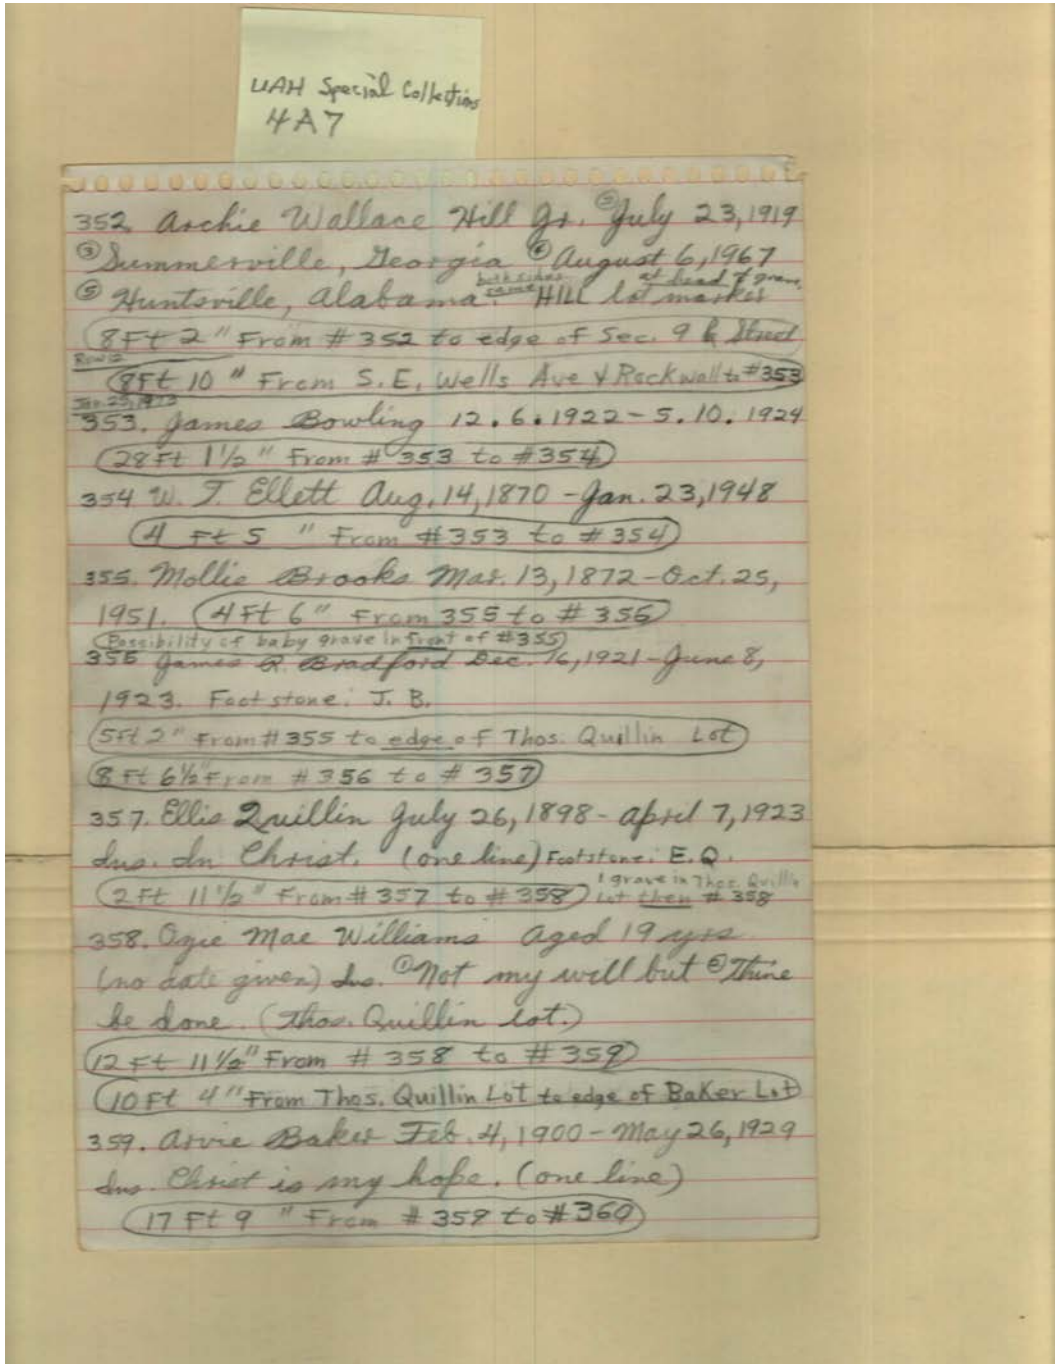 UAH Special Collections
4A7
352. Archie Wallace Hill Jr. ② July 23, 1919
③ Summerville, Georgia ④ August 6, 1967
both sides same at head of grave,
⑤ Huntsville, Alabama. HILL lot marker
8Ft 2" From #352 to edge of Sec. 9 & Street
Row 12
8Ft 10" From S.E, Wells Ave & Rockwall to #353
Jan. 25, 1973
353. James Bowling 12.6.1922 - 5.10.1924
28Ft 1½" From #353 to #354
354 W. T. Ellett Aug. 14, 1870 - Jan. 23, 1948
4 Ft 5 " From #353 to #354
355. Mollie Brooks Mar. 13, 1872 - Oct. 25,
1951. 4Ft 6" From 355 to #356
(Possibility of baby grave in front of #355)
356 James R. Bradford Dec. 16, 1921 - June 8,
1923. Footstone: J. B.
5Ft 2" From #355 to edge of Thos. Quillin Lot
8 Ft 6½" From #356 to #357
357. Ellis Quillin July 26, 1898 - April 7, 1923
Ins. In Christ. (one line) Footstone: E.Q.
1 grave in Thos. Quillin
2 Ft 11½" From #357 to #358 Lot then #358
358. Ogie Mae Williams Aged 19 yrs
(no date given) Ins. ① Not my will but ② Thine
be done. (Thos. Quillin lot.)
12 Ft 11½" From #358 to #359
10 Ft 4" From Thos. Quillin Lot to edge of Baker Lot
359. Arvie Baker Feb. 4, 1900 - May 26, 1929
Ins. Christ is my hope. (one line)
17 Ft 9 " From #359 to #360